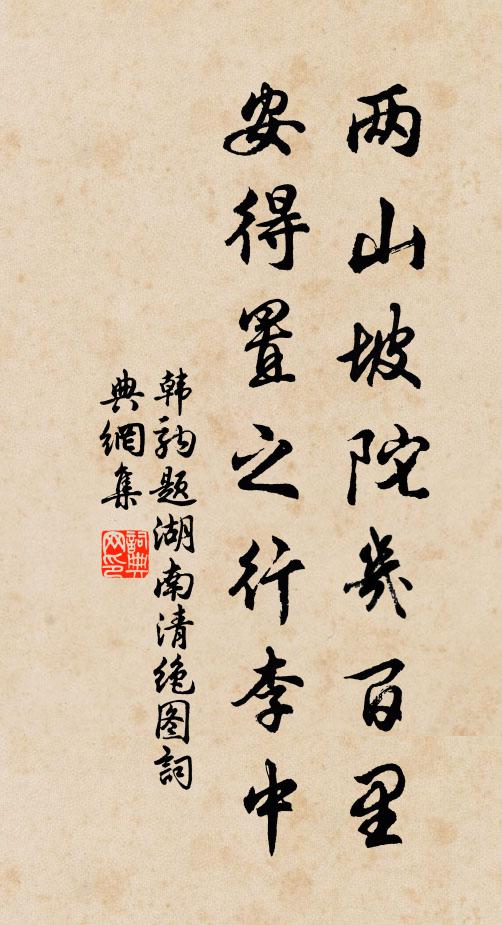 两山坡陀几百里
安得置之行李中
韩驹题湖南清绝图詞
典網集
詞典
网印